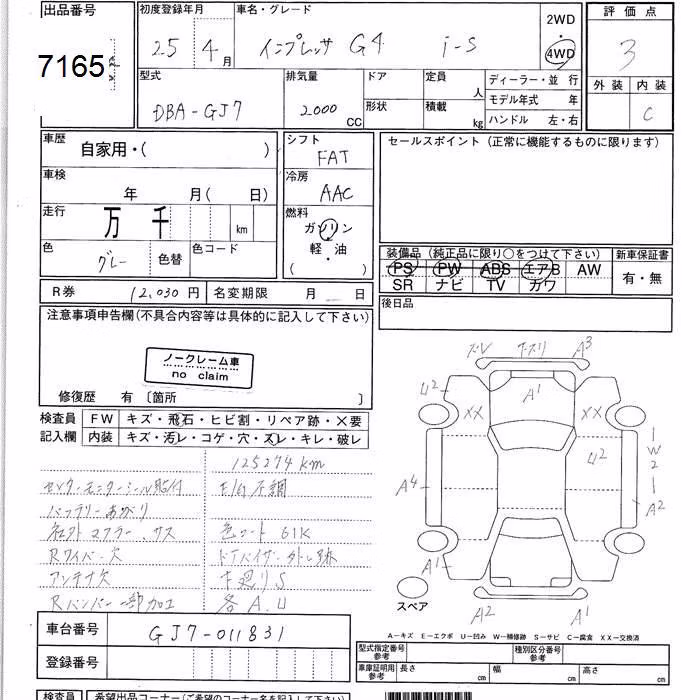 出品番号 初度登録年月 車名・グレード 2WD 評価点
7165 25年 4月 インプレッサ G4 i-S ・ 4WD 3
型式 排気量 ドア 定員 人 ディーラー・並 行 外装 内装
DBA-GJ7 2000 CC 形状 積載 kg モデル年式 年 C
ハンドル 左・右
車歴 自家用・( ) シフト FAT セールスポイント (正常に機能するものに限ります)
車検 年 月( 日) 冷房 AAC
走行 万 千 km 燃料 ガソリン
軽・油
( )
色 グレー 色替 色コード
装備品 (純正品に限り○をつけて下さい) 新車保証書
PS PW ABS エアB AW 有・無
SR ナビ TV カワ
R券 12,030円 名変期限 月 日 後日品
注意事項申告欄(不具合内容等は具体的に記入して下さい)
ノークレーム車
no claim
修復歴 有 〔箇所 〕
検査員 FW キズ・飛石・ヒビ割・リペア跡・×要
記入欄 内装 キズ・汚レ・コゲ・穴・スレ・キレ・破レ
125274km
センターモニターシール貼付
バッテリーあがり
社外マフラー、サス 色コート 61K
Rワイパー欠 ドアバイザー外し跡
アンテナ欠 下廻りS
Rバンパー一部加工 各A.U
ズレ A3
A1
U2 XX XX
U2 W2
A4 A2
A1
スペア A2 A1
A-キズ E-エクボ U-凹み W-補修跡 S-サビ C-腐食 XX-交換済
車台番号 GJ7-011831
登録番号
型式指定番号 参考 種別区分番号 参考
車庫証明用 参考 長さ cm 幅 cm 高さ cm
検査員 希望出品コーナー(ご希望のコーナー名を記入して下さい)